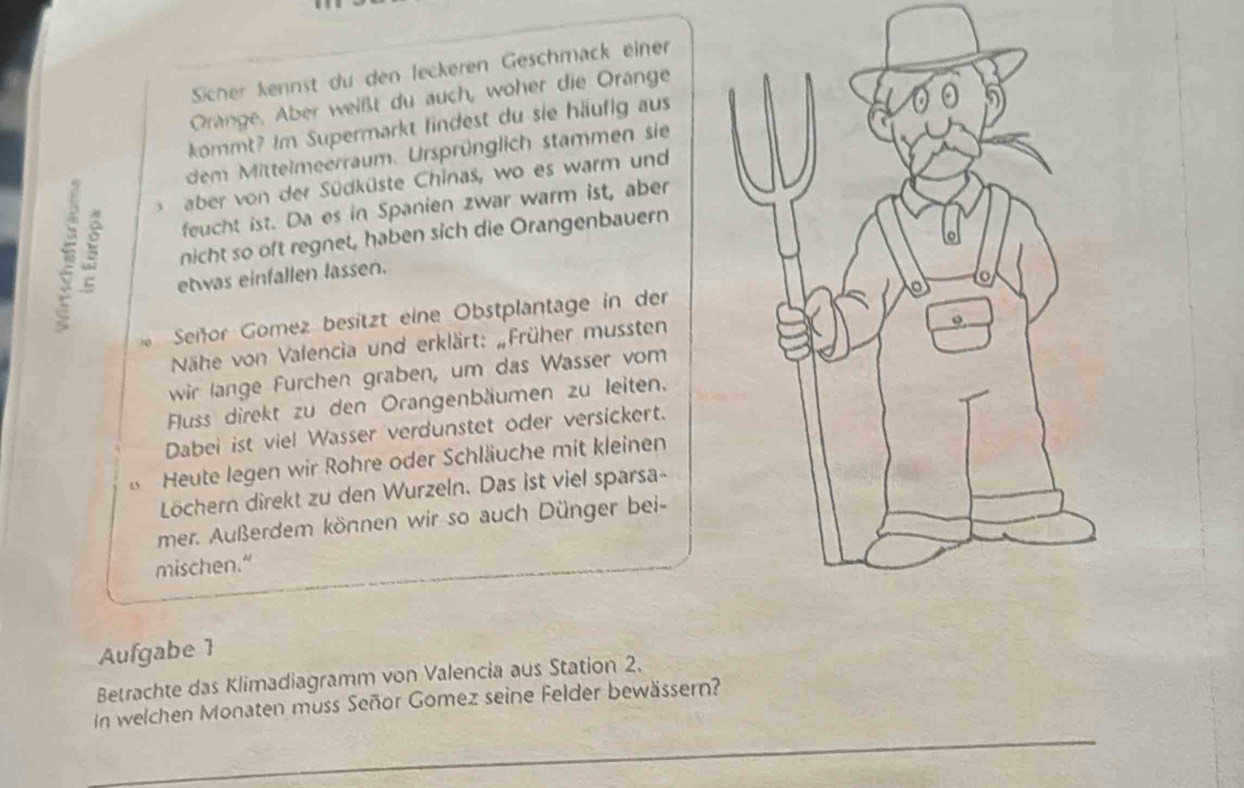 Sicher kennst du den leckeren Geschmack einer
Orange. Aber weißt du auch, woher die Orange
kommt? Im Supermarkt findest du sie häufig aus
dem Mittelmeerraum. Ursprünglich stammen sie
5 aber von der Südküste Chinas, wo es warm und
feucht ist. Da es in Spanien zwar warm ist, aber
nicht so oft regnet, haben sich die Orangenbauern
etwas einfallen lassen.
10 Señor Gomez besitzt eine Obstplantage in der
Nähe von Valencia und erklärt: „Früher mussten
wir lange Furchen graben, um das Wasser vom
Fluss direkt zu den Orangenbäumen zu leiten.
Dabei ist viel Wasser verdunstet oder versickert.
15 Heute legen wir Rohre oder Schläuche mit kleinen
Löchern direkt zu den Wurzeln. Das ist viel sparsa-
mer. Außerdem können wir so auch Dünger bei-
mischen.“
Wirtschaftsräume
in Europa
Aufgabe 1
Betrachte das Klimadiagramm von Valencia aus Station 2.
In welchen Monaten muss Señor Gomez seine Felder bewässern?